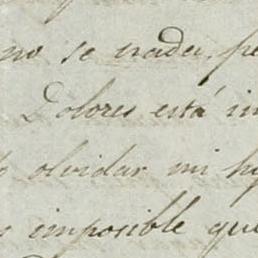 no se nada, pe
Dolores está in
olvidar mi hij
imposible que